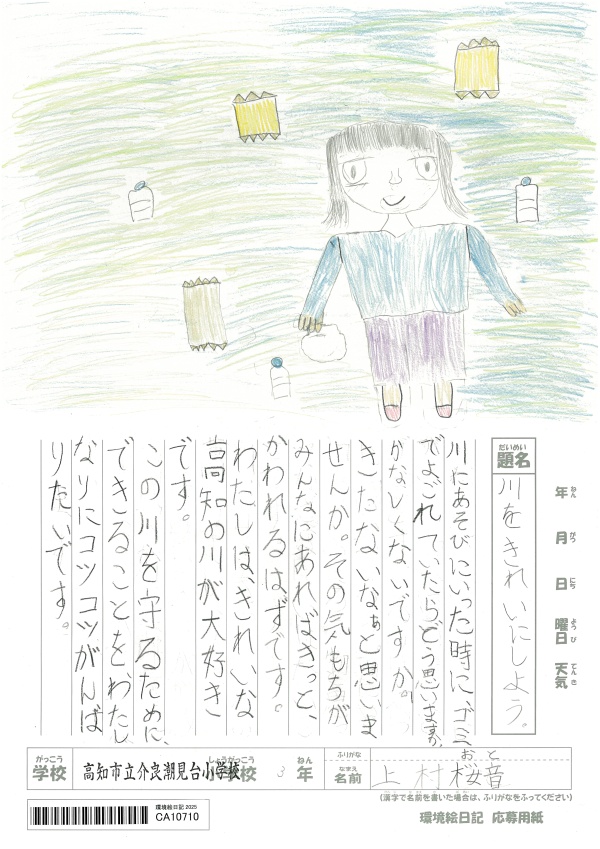 年 ねん
月 がつ
日 にち
曜日 ようび
天気 てんき
題名 だいめい
川をきれいにしよう。
川にあそびにいった時にゴミ
でよごれていたらどう思いますか。
かなしくないですか。
きたないなぁと思いま
せんか。その気もちが
みんなにあればきっと、
かわれるはずです。
わたしは、きれいな
高知の川が大好き
です。
この川を守るために、
できることをわたし
なりにコツコツがんば
りたいです。
がっこう
学校
高知市立介良潮見台小学校
しょうがっこう
3
ねん
年
ふりがな
おと
なまえ
名前
上村桜音
(漢字で名前を書いた場合は、ふりがなをふってください)
環境絵日記 2025
CA10710
環境絵日記 応募用紙